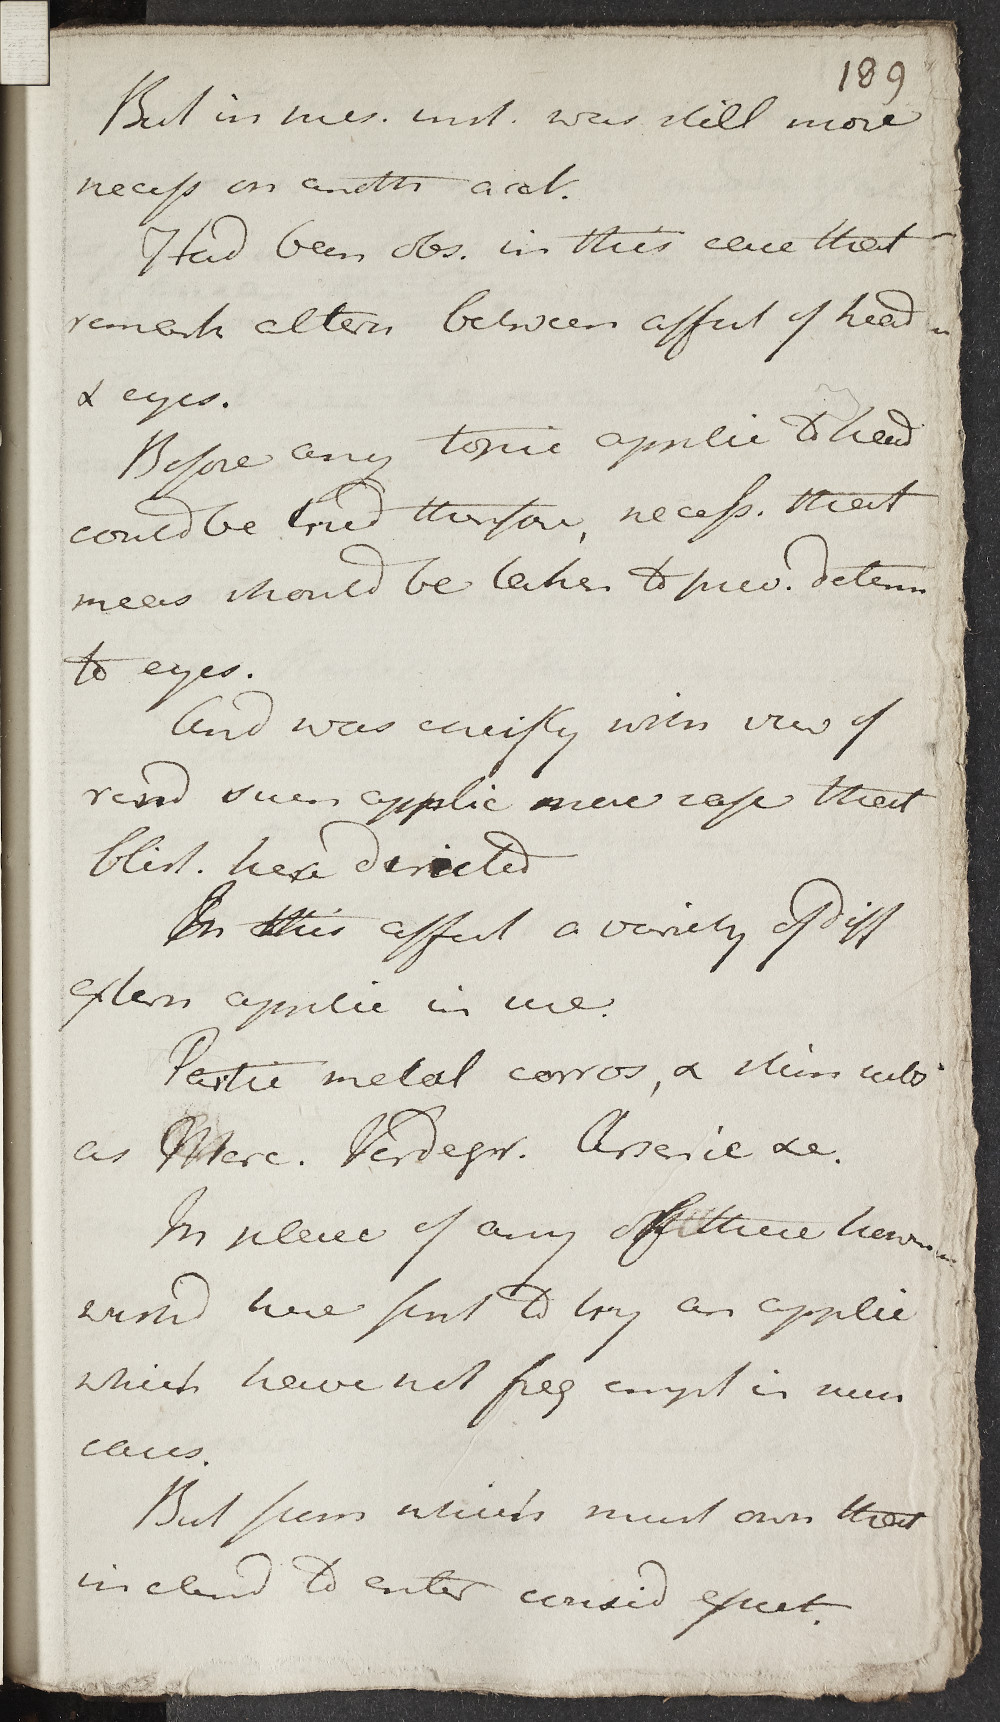 189
But in this inst. was still more
necess on anoth acct.
Had been obs. in this case that
remark altern between affect of head
& eyes.
Before any tonic applic to head
could be tried therefore, necess. that
meas should be taken to prev. determ
to eyes.
And was chiefly with view of
rend such applic more safe that
blist. here directed
In this affect a variety of diff
extern applic in use.
Partic metal corros, & stim subs
as Merc. Verdegr. Arsenic &c.
In place of any of these how
wishd here first to try an applic
which have not freq empl in such
cases.
But from which must own that
inclend to enter consid expect.